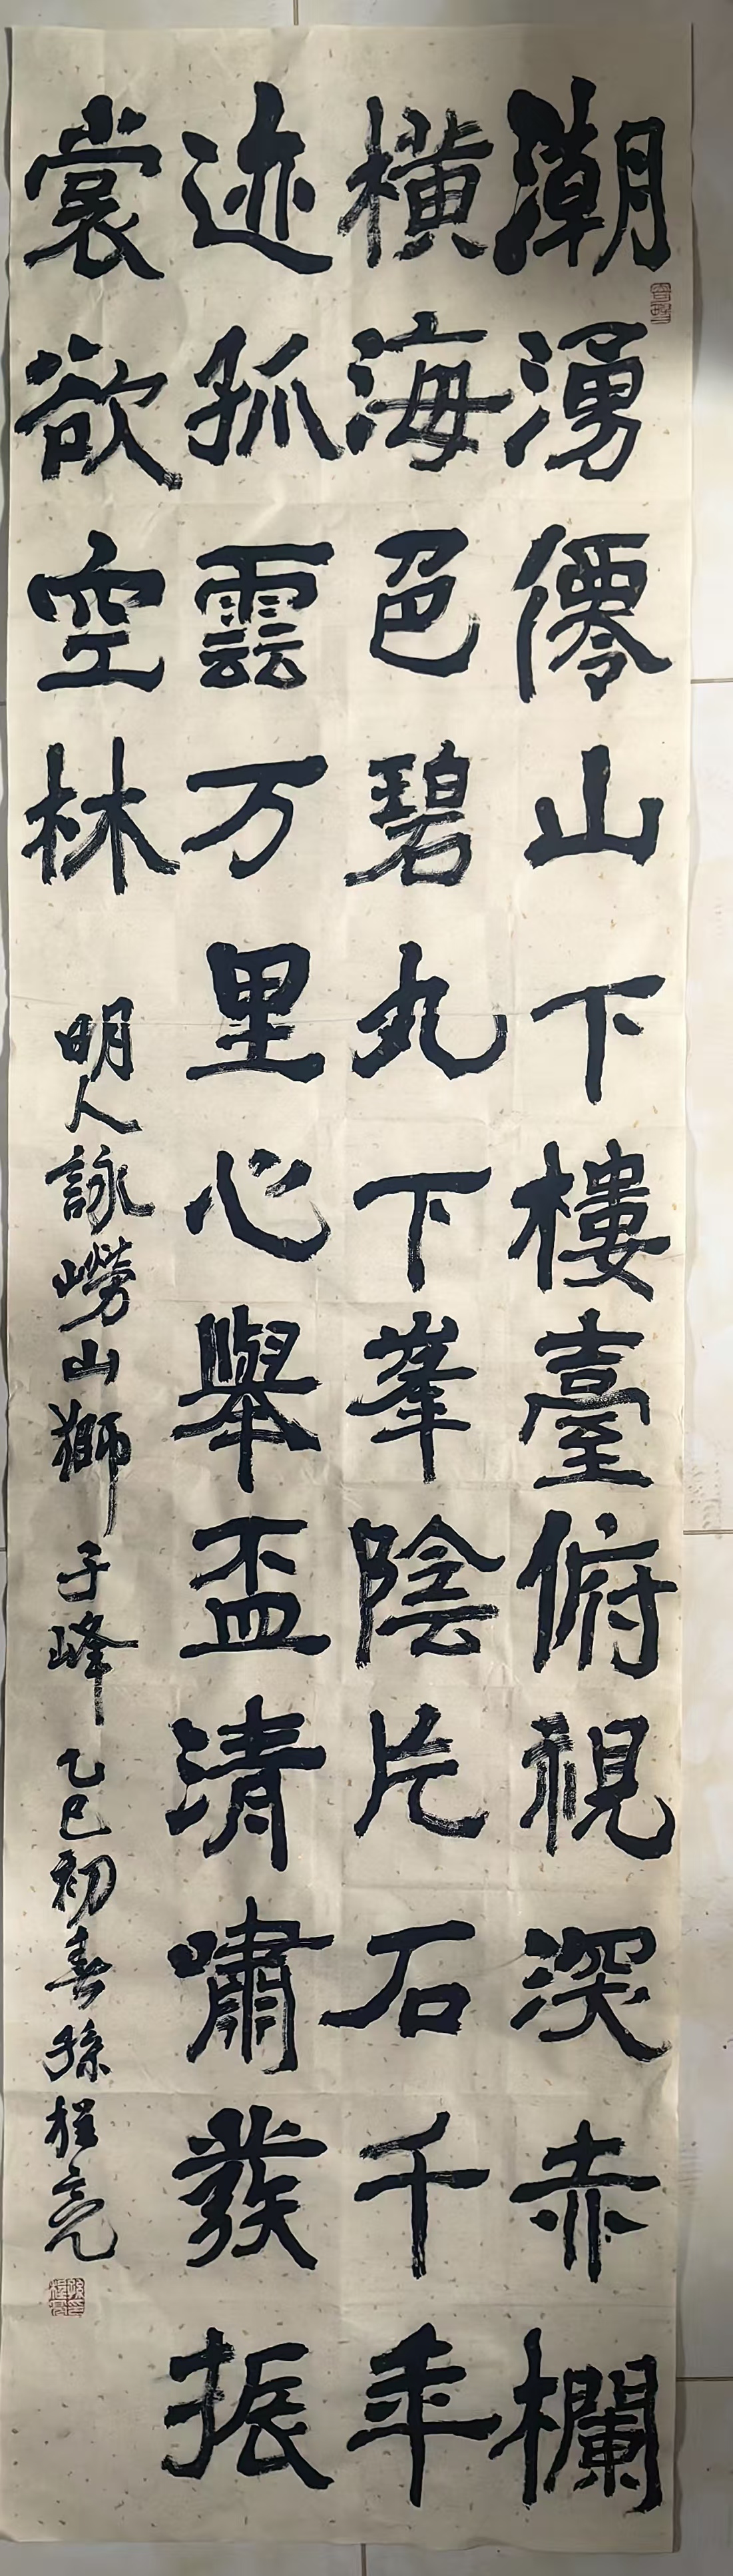 潮湧僊山下樓臺俯視深赤欄
橫海色碧丸下峯陰片石千年
迹孤雲万里心舉盃清嘯發振
裳欲空林
明人詠嶗山獅子峰乙巳初春孫程亮